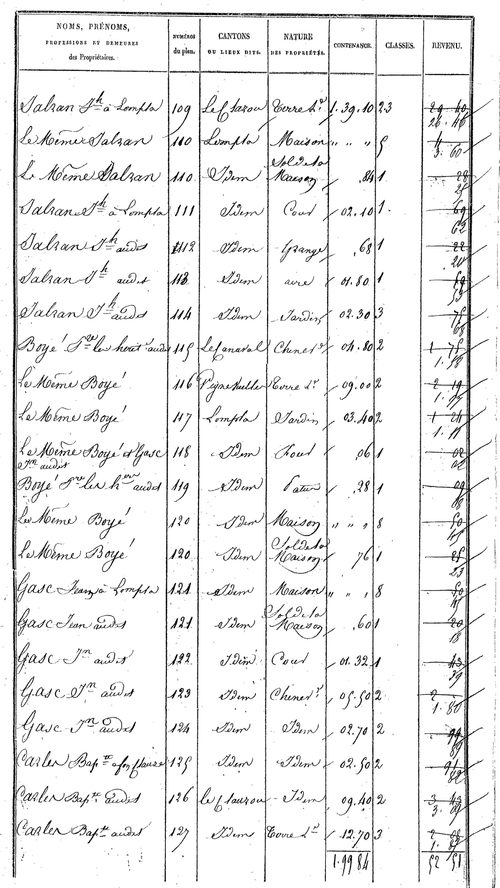 NOMS, PRÉNOMS, PROFESSIONS ET DEMEURES des Propriétaires. NUMÉROS du plan. CANTONS OU LIEUX DITS. NATURE DES PROPRIÉTÉS. CONTENANCE. CLASSES. REVENU.
Jalran Jh à Lompla 109 Le Clauzou Terre Lle 1.39.10 23 29 40 26 46
Le Même Jalran 110 Lompla Maison " " " 5 4 3.60
Le Même Jalran 110 Idem Sol de la Maison .84 1 28 25
Jalran Jh à Lompla 111 Idem Cour 02.10 1 69 62
Jalran Jh audit 112 Idem Grange .68 1 22 20
Jalran Jh audit 113 Idem aire 01.80 1 59 53
Jalran Jh audit 114 Idem Jardin 02.30 3 75 68
Boyé audit 115 04.80 2 1 75 1.58
Le Même Boyé 116 Terre Lle 09.00 2 2 19 1.97
Le Même Boyé 117 Lompla Jardin 03.40 2 1 24 1.11
Le Même Boyé et Gasc Jn audit 118 Idem Four .06 1 02 02
Boyé audit 119 Idem Patus .28 1 09 08
Le Même Boyé 120 Idem Maison " " " 8 50 45
Le Même Boyé 120 Idem Sol de la Maison 76 1 25 23
Gasc Jean à Lompla 121 Idem Maison " " " 8 50 45
Gasc Jean audit 121 Idem Sol de la Maison .60 1 20 18
Gasc Jn audit 122 Idem Cour 01.32 1 43 39
Gasc Jn audit 123 Idem 05.50 2 2 1.80
Gasc Jn audit 124 Idem Idem 02.70 2 99 89
Carles Bapte 125 Idem Idem 02.50 2 91 82
Carles Bapte audit 126 le Clauzou Idem 09.40 2 3 43 3.09
Carles Bapte audit 127 Idem Terre Lle 12.70 3 2 08 1.87
1.99 84 52 51